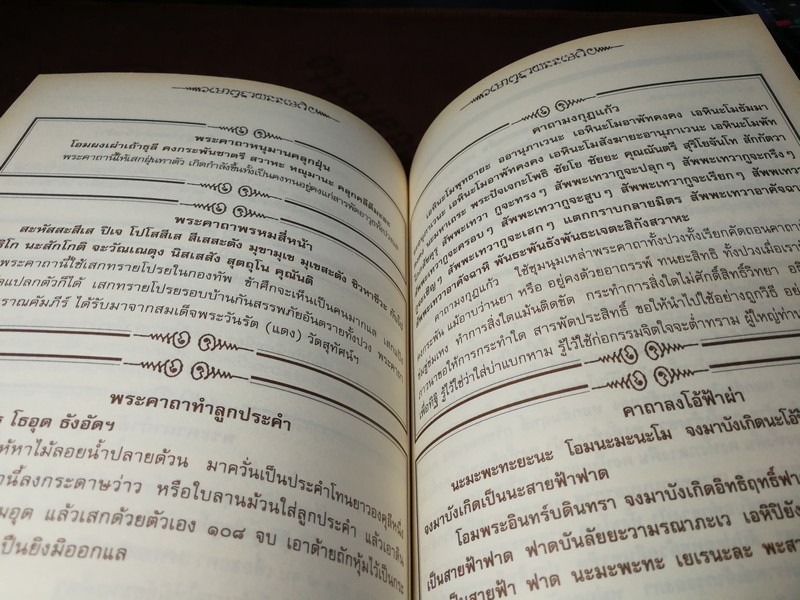 พระคาถาหนุมานคลุกฝุ่น
โอมผงเผ่าเถ้าธุลี คงกระพันชาตรี สวาหะ หณุมานะ คลุกคลีตีมะละ
พระคาถานี้ให้เสกฝุ่นทาตัว เกิดกำลังขึ้นทั้งเป็นคงทนอยู่คงแก่สารพัดอาวุธทั้งปวงแล
พระคาถาพรหมสี่หน้า
สะหัสสะสีเส ปิเจ โปโสสีเส สีเสสะตัง มุขามุเข มุเขสะตัง ชิวหาชิวะ
ธิโก นะสักโกติ จะวัณเณตุง นิสเสสัง สุตถุโน คุณันติ
พระคาถานี้ใช้เสกทรายโปรยในกองทัพ ข้าศึกจะเห็นเป็นคนมากแล เสกแป้ง
ดแปลกตัวก็ได้ เสกทรายโปรยรอบบ้านกันสรรพภัยอันตรายทั้งปวง พระคาถา
ราณคัมภีร์ ได้รับมาจากสมเด็จพระวันรัต (แดง) วัดสุทัศน์ฯ
พระคาถาทำลูกประคำ
ร โธอุด ธังอัดฯ
ห้หาไม้ลอยน้ำปลายด้วน มาควั่นเป็นประคำโทนยาวองคุลีหนึ่ง
านี้ลงกระดาษว่าว หรือใบลานม้วนใส่ลูกประคำ แล้วเอาดิน
มอุด แล้วเสกด้วยตัวเอง ๑๐๘ จบ เอาด้ายถักหุ้มไว้เป็นกระ
เป็นยิงมิออกแล
คาถามงกุฎแก้ว
เอหินะโมพุทธายะ ออานุภาเวนะ เอหินะโมอาพัทคงคง เอหินะโมธัมมา
ยะอานุภาเวนะ เอหินะโมอาพัทคงคง เอหินะโมสังฆายะอานุภาเวนะ เอหินะโมพัท
นะมะหาเถระ พระปัจเจกะโพธิ ชัยโย ชัยยะ คุณณันตรี สุริโยจันโท สักกัตวา
สัพพะเทวา กูจะทรงๆ สัพพะเทวากูจะปลุกๆ สัพพะเทวากูจะกริ่งๆ
สัพพะเทวากูจะครอบๆ สัพพะเทวากูจะสูบๆ สัพพะเทวากูจะเรียกๆ สัพพะเทวา
สัพพะเทวากูจะเสกๆ แตกกราบกลายมิตร สัพพะเทวาอาคัจฉา
อาคัจฉาหิ พันธะพันธังพันธะเจตะสิกังสวาหะ
คาถามงกุฎแก้ว ใช้ชุมนุมเหล่าพระคาถาทั้งปวงทั้งเรียกคัดถอนคาถา
คงกระพัน แม้อาบว่านยา หรือ อยู่คงด้วยอาถรรพ์ ทนยะสิทธิ ทั้งปวงเมื่อเรา
ทำการสิ่งใดแม้นติดขัด กระทำการสิ่งใดไม่ศักดิ์สิทธิ์วิทยา
ภาวนาขอให้การกระทำใด สารพัดประสิทธิ์ ขอให้นำไปใช้อย่างถูกวิธี
เพื่อทิฐิ รู้ไว้ใช่ว่าใส่บ่าแบกหาม รู้ไว้ใช้ก่อกรรมจิตใจจะต่ำทราม ผู้ใหญ่ท่าน
คาถาลงโอ้ฟ้าผ่า
นะมะพะทะยะนะ โอมนะมะนะโม จงมาบังเกิดนะโอ้
จงมาบังเกิดเป็นนะสายฟ้าฟาด
โอมพระอินทร์บดินทรา จงมาบังเกิดอิทธิฤทธิ์ฟา
เป็นสายฟ้าฟาด ฟาดบันลัยยะะวามรณาภะเว เอหิปิยัง
เป็นสายฟ้า ฟาด นะมะพะทะ เยเรนะละ พะสา